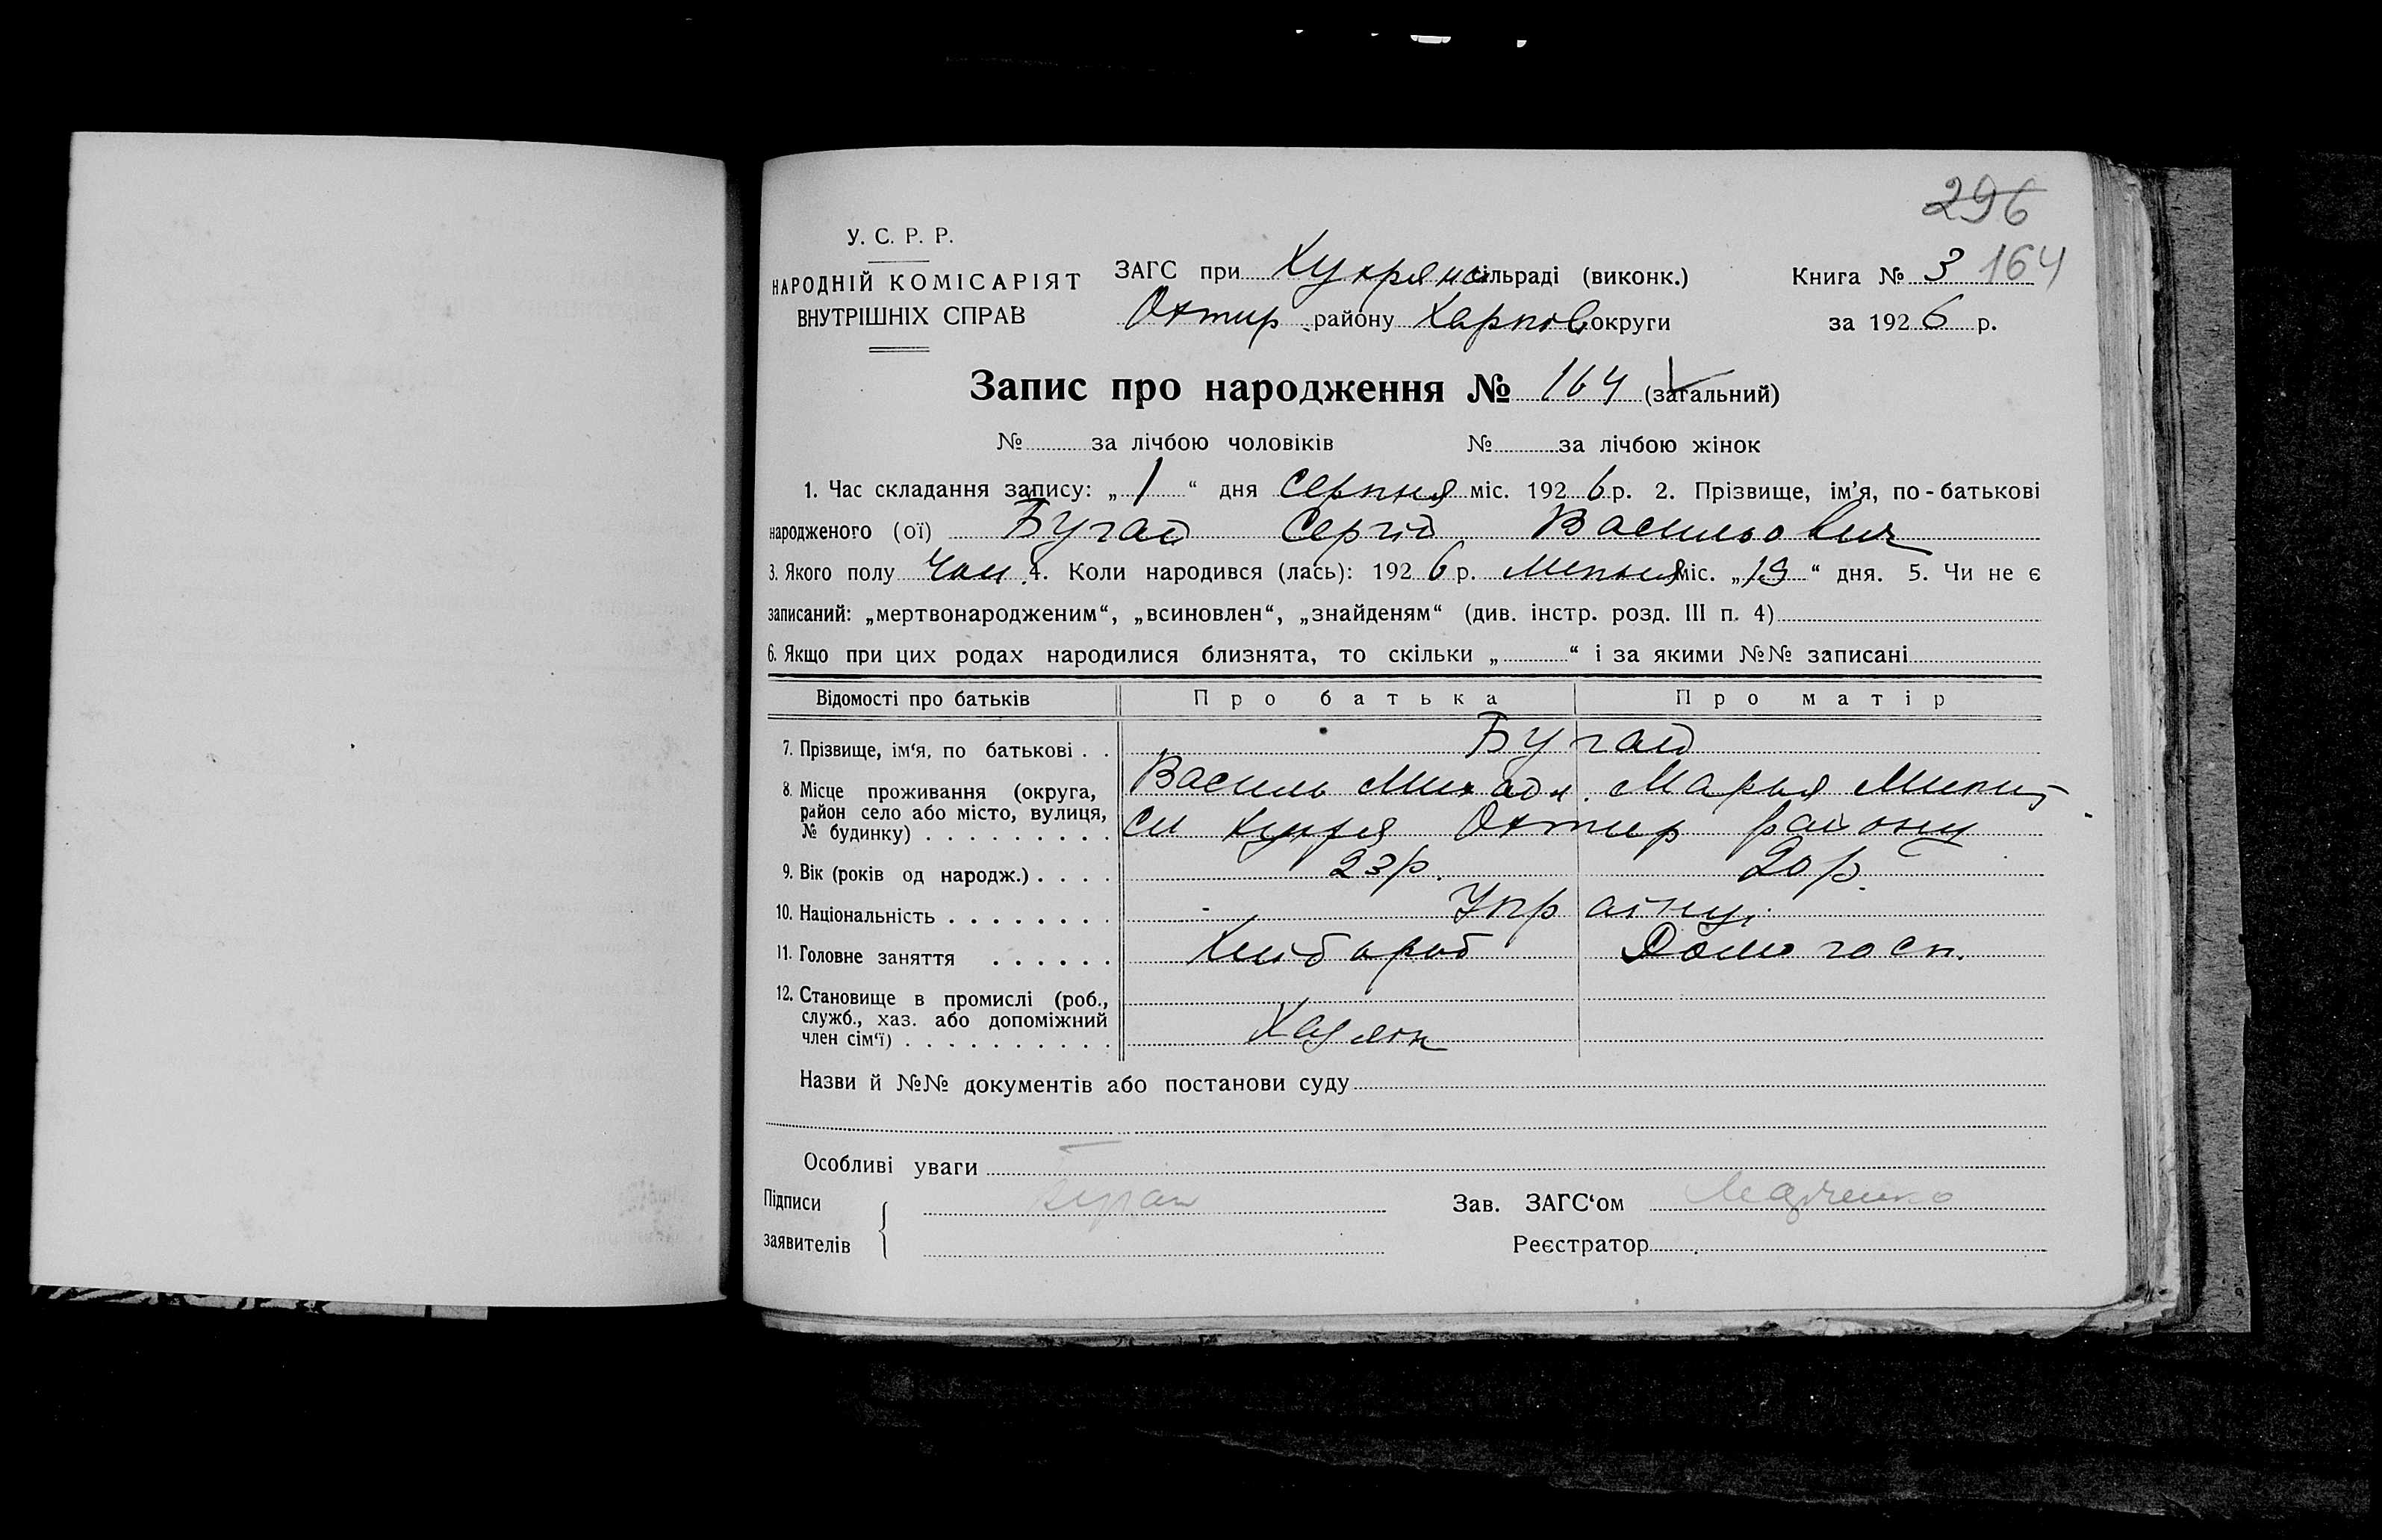 296
У. С. Р. Р.
НАРОДНІЙ КОМІСАРІЯТ
ВНУТРІШНІХ СПРАВ
ЗАГС при Хухрянс сільраді (виконк.)
Охтир. району Харков округи
Книга № 3 164
за 1926 р.
Запис про народження № 164 (загальний)
№ за лічбою чоловіків № за лічбою жінок
1. Час складання запису: „1“ дня Серпня міс. 1926 р. 2. Прізвище, ім’я, по-батькові
народженого (ої) Бугай Сергій Васильович
3. Якого полу Чол. 4. Коли народився (лась): 1926 р. Липня міс. „19“ дня. 5. Чи не є
записаний: „мертвонародженим“, „всиновлен“, „знайденям“ (див. інстр. розд. III п. 4)
6. Якщо при цих родах народилися близнята, то скільки „ “ і за якими №№ записані
Відомості про батьків Про батька Про матір
7. Прізвище, ім‘я, по батькові . . Бугай
Василь Михайл. Марья Микит
8. Місце проживання (округа, район село або місто, вулиця, № будинку) . . . . . . . . . сл Хухря Охтир району
9. Вік (років од народж.) . . . . 23 р. 20 р.
10. Національність . . . . . . . Україн
11. Головне заняття . . . . . . Хлібороб Домо госп.
12. Становище в промислі (роб., служб., хаз. або допоміжний член сім‘ї) . . . . . . . . . . Хазяїн
Назви й №№ документів або постанови суду
Особливі уваги
Підписи
заявителів
Бугай
Зав. ЗАГС‘ом
Реєстратор